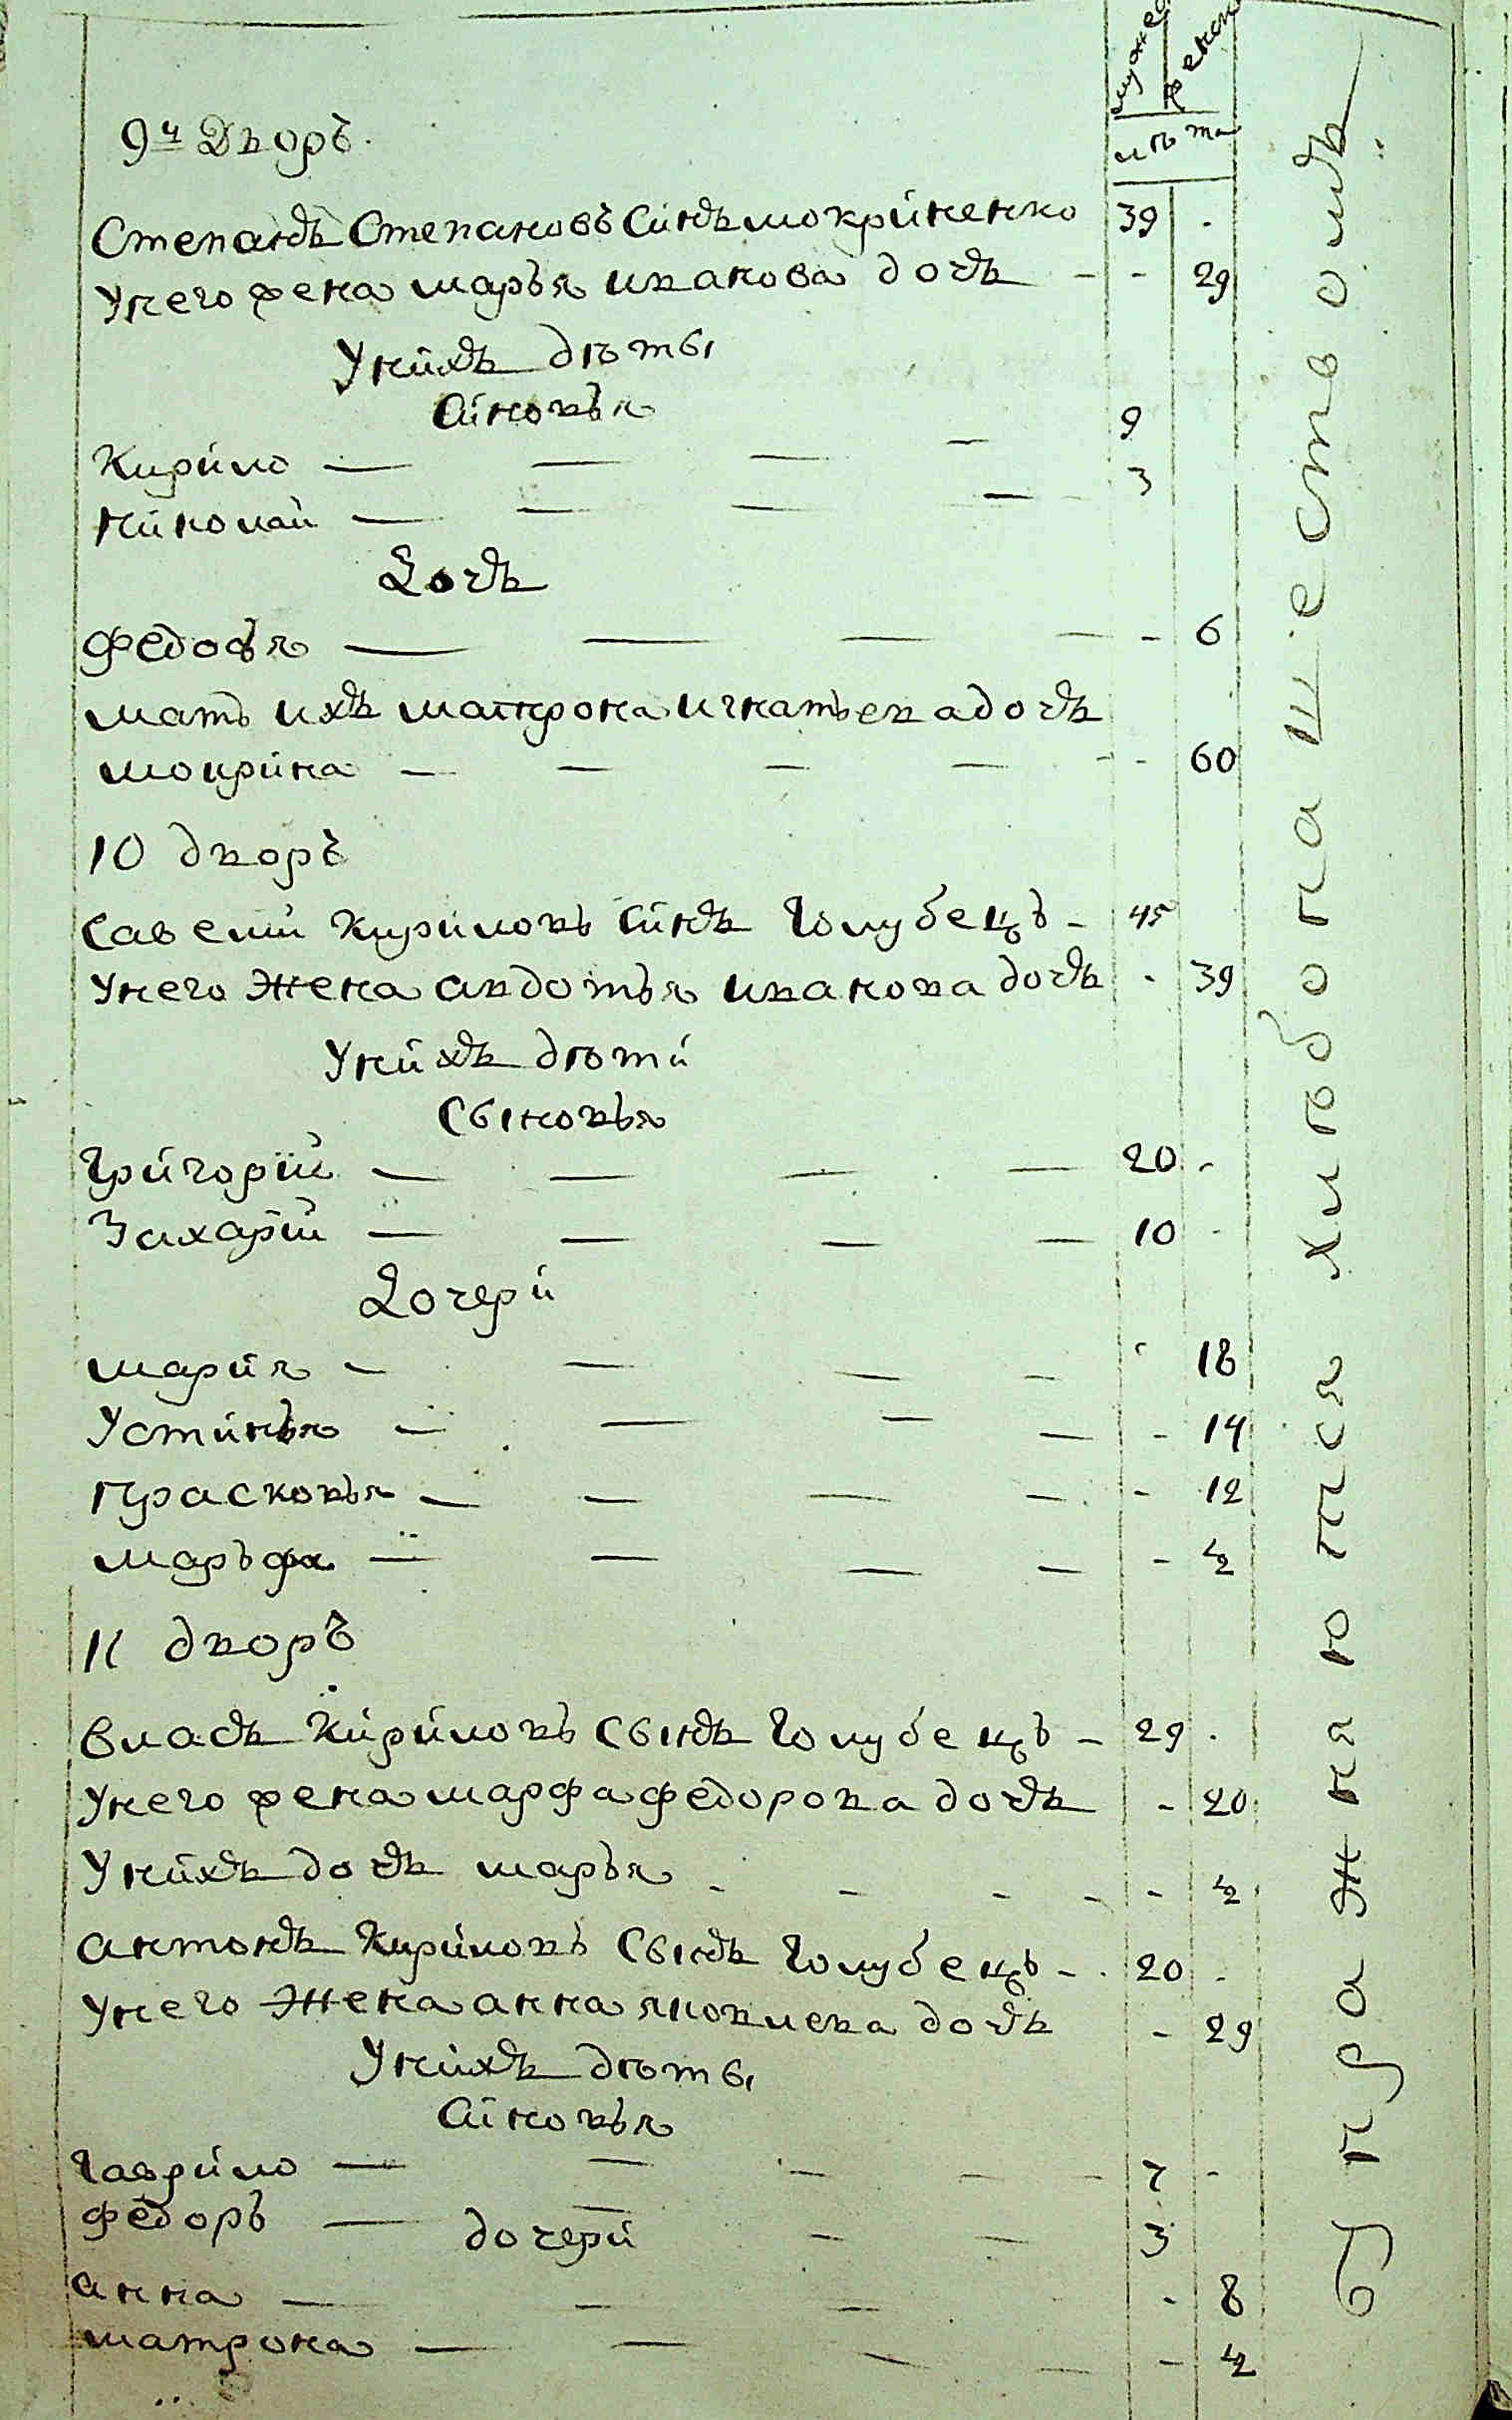 мужеска женска
лѣта
9й Дворъ.
Степанъ Степановъ Синъ мокриненко 39 -
Унего жена марья иванова дочь - - 29
Унихъ дѣты
Синовья
Кирило — — — — 9
Николай — — — — 3
Дочь
Федосья — — — - - 6
мать ихъ матрона игнатьева дочь
мокрина — — — — - - 60
10 дворъ
Савелий Кириловъ синъ Голубецъ - 45
Унего жена авдотья иванова дочь - 39
Унихъ дѣти
Сыновья
Григорий — — — — 20 -
Захарий — — — — 10 -
Дочери
мария — — — — - 18
Устинья — — — — - 14
Прасковья — — — — - 12
марьфа — — — — - ½
11 дворъ
Власъ Кириловъ Сынъ Голубецъ - 29 -
Унего жена марфа федорова дочь - 20
Унихъ дочь марья - - - - - ½
антонъ Кириловъ Сынъ Голубецъ - 20 -
Унего жена анна яковлева дочь - 29
Унихъ дѣты
Синовья
Гаврило — — — — 7 -
федоръ — — — — 3
дочери
анна — — — - 8
матрона — — — — - ½
упражняются хлѣбопашествомъ